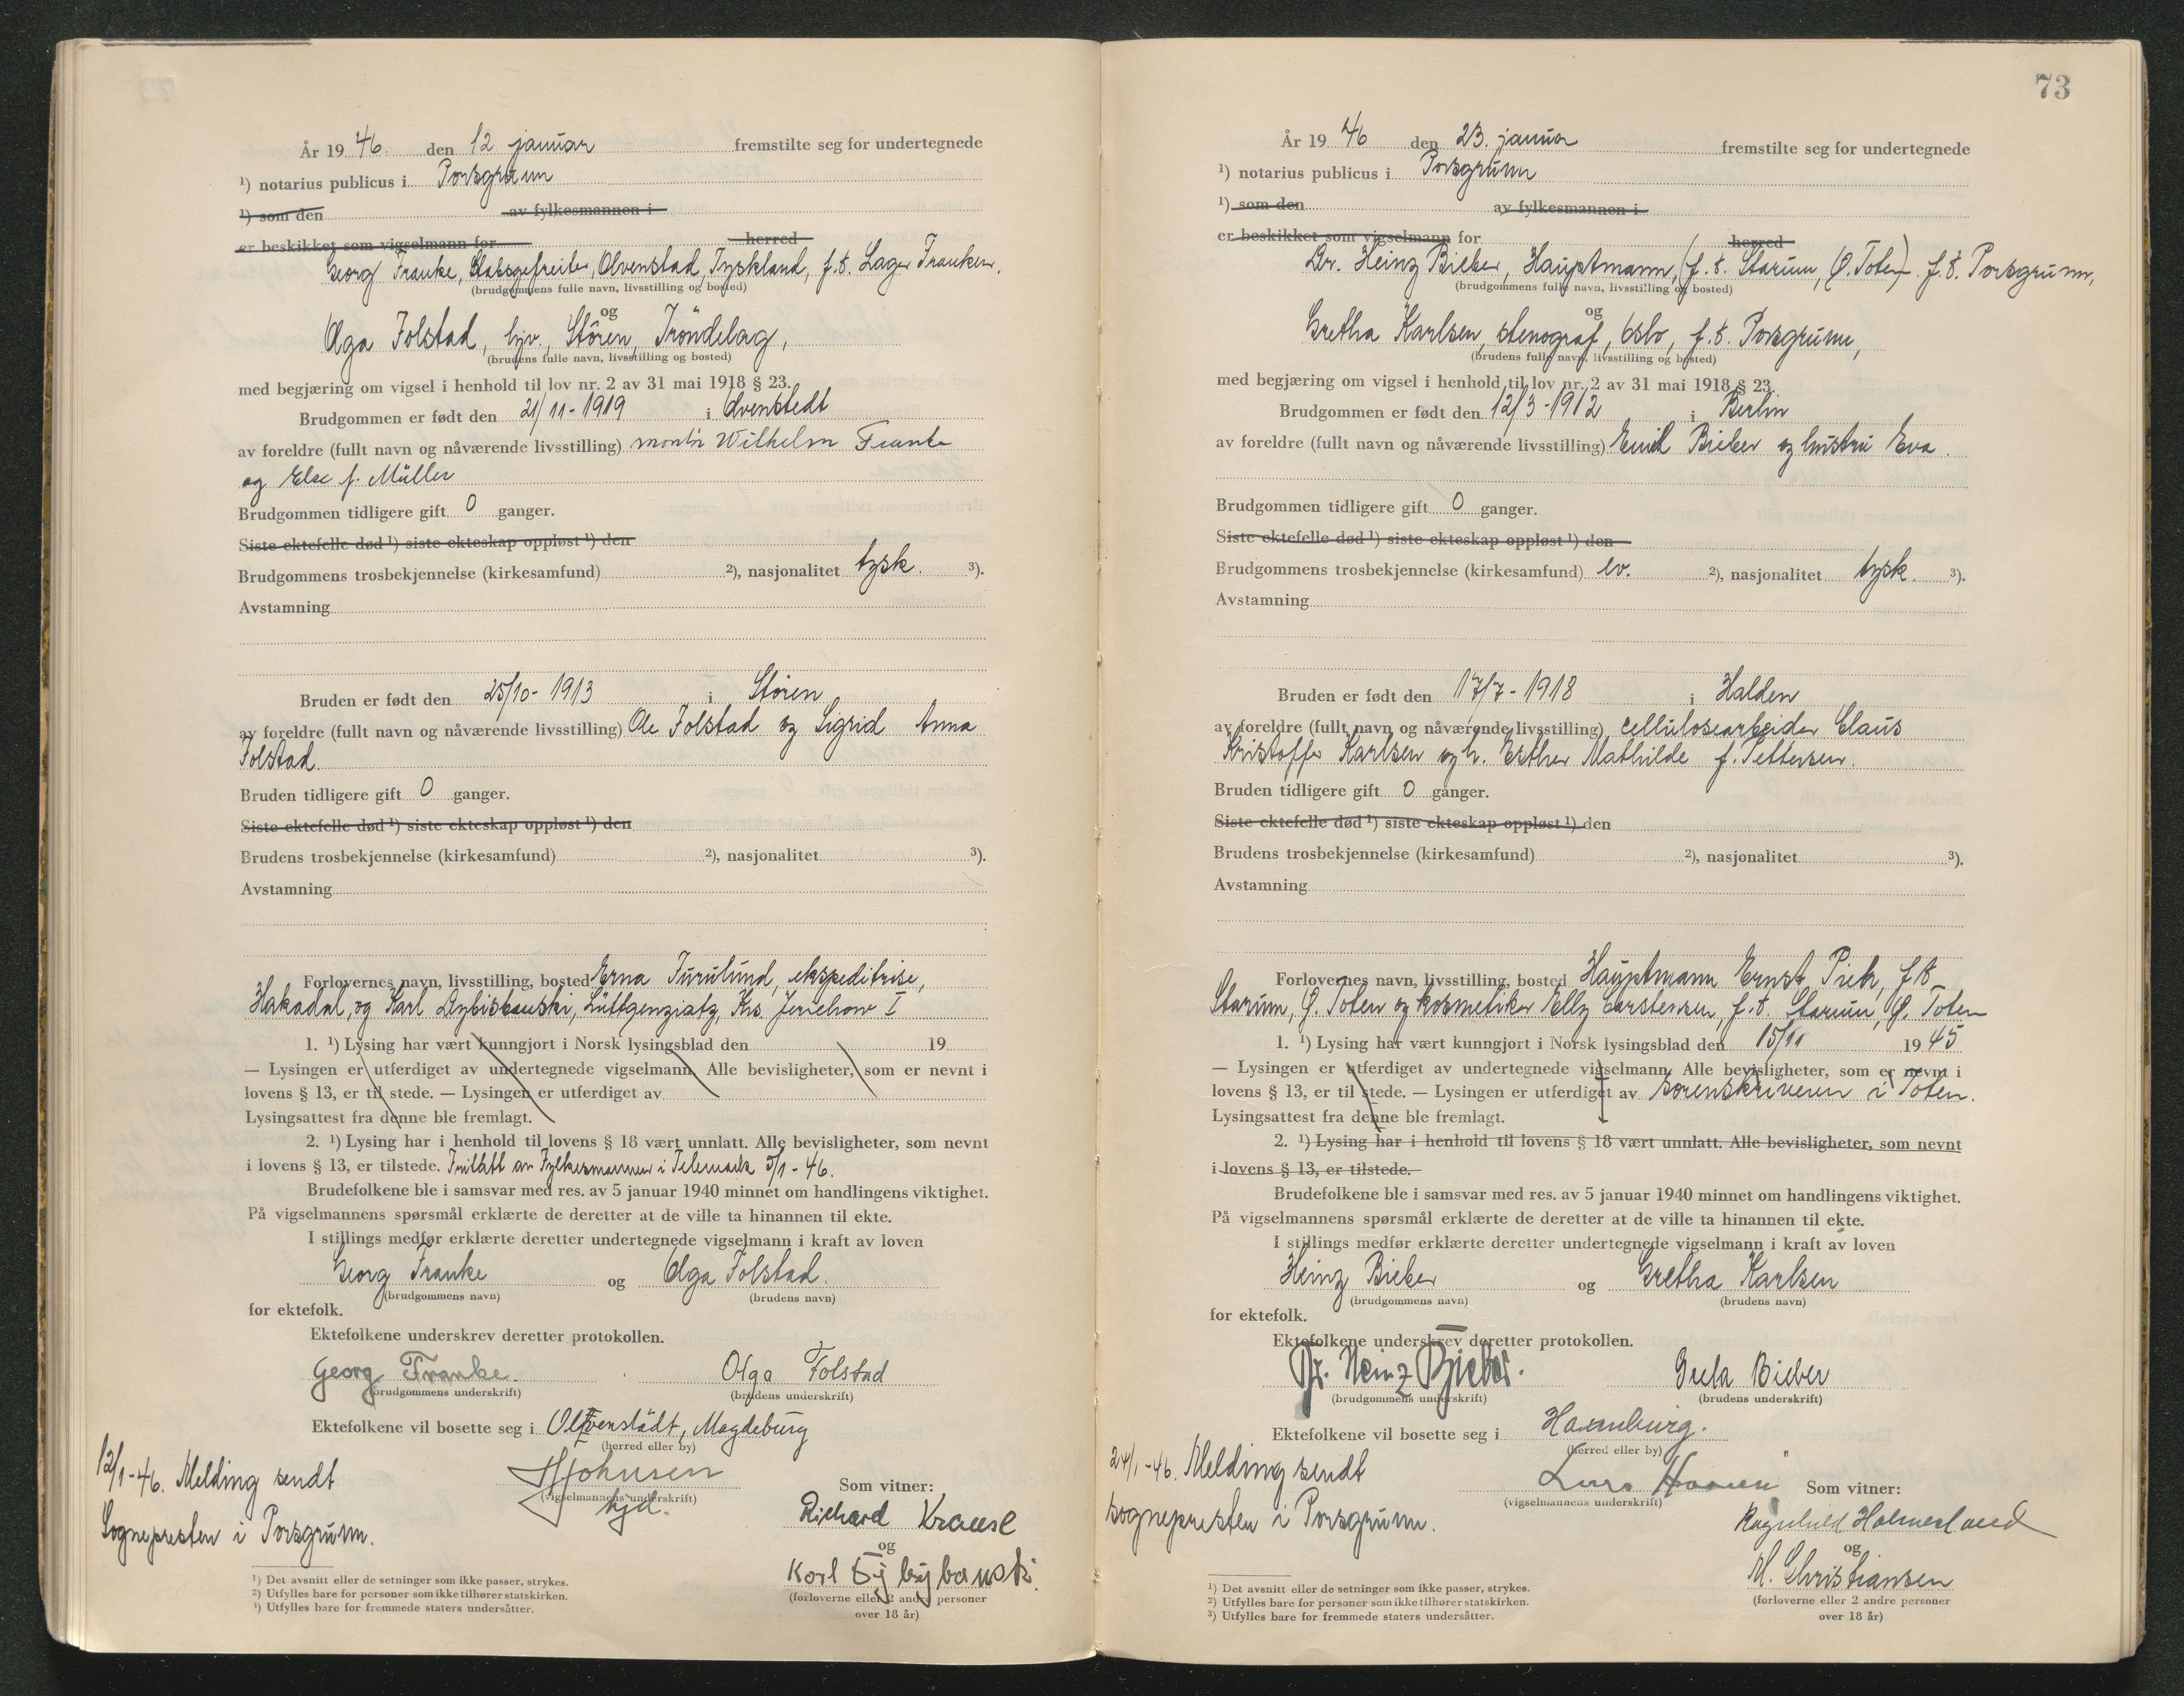 År 19 46. den 12 januar fremstilte seg for undertegnede
¹) notarius publicus i Porsgrunn
¹) som den av fylkesmannen i
er beskikket som vigselmann for herred
Georg Franke, Stabsgefreiter, Olvenstad, Tyskland, f.t. Lager Franken,
(brudgommens fulle navn, livsstilling og bosted)
og
Olga Folstad, hjv., Stören, Tröndelag,
(brudens fulle navn, livsstilling og bosted)
med begjæring om vigsel i henhold til lov nr. 2 av 31 mai 1918 § 23.
Brudgommen er født den 21/11-1919 i Olvenstedt
av foreldre (fullt navn og nåværende livsstilling) montör Wilhelm Franke
og Else f. Müller
Brudgommen tidligere gift 0 ganger.
Siste ektefelle død ¹) siste ekteskap oppløst ¹) den
Brudgommens trosbekjennelse (kirkesamfund) ²), nasjonalitet tysk. ³).
Avstamning
Bruden er født den 25/10-1913 i Stören
av foreldre (fullt navn og nåværende livsstilling) Ole Folstad og Sigrid Anna
Folstad.
Bruden tidligere gift 0 ganger.
Siste ektefelle død ¹) siste ekteskap oppløst ¹) den
Brudens trosbekjennelse (kirkesamfund) ²), nasjonalitet ³).
Avstamning
Forlovernes navn, livsstilling, bosted Erna Furulund, ekspeditrise,
Hakadal, og Karl Lüttgenziatz, Krs. Jerichow I
1. ¹) Lysing har vært kunngjort i Norsk lysingsblad den 19
— Lysingen er utferdiget av undertegnede vigselmann. Alle bevisligheter, som er nevnt i
lovens § 13, er til stede. — Lysingen er utferdiget av
Lysingsattest fra denne ble fremlagt.
2. ¹) Lysing har i henhold til lovens § 18 vært unnlatt. Alle bevisligheter, som nevnt
i lovens § 13, er tilstede. Innlatt av Fylkesmannen i Telemark 5/1-46.
Brudefolkene ble i samsvar med res. av 5 januar 1940 minnet om handlingens viktighet.
På vigselmannens spørsmål erklærte de deretter at de ville ta hinannen til ekte.
I stillings medfør erklærte deretter undertegnede vigselmann i kraft av loven
Georg Franke og Olga Folstad.
(brudgommens navn) (brudens navn)
for ektefolk.
Ektefolkene underskrev deretter protokollen.
Georg Franke. Olga Folstad
(brudgommens underskrift) (brudens underskrift)
Ektefolkene vil bosette seg i Olvenstädt, Magdeburg
(herred eller by)
12/1-46. Melding sendt
Sognepresten i Porsgrunn.
HJohnsen
(vigselmannens underskrift)
bfd.
Som vitner:
Richard Krause
og
Karl
(forloverne eller 2 andre personer
over 18 år)
¹) Det avsnitt eller de setninger som ikke passer, strykes.
²) Utfylles bare for personer som ikke tilhører statskirken.
³) Utfylles bare for fremmede staters undersåtter.
73
År 19 46 den 23. januar fremstilte seg for undertegnede
¹) notarius publicus i Porsgrunn
¹) som den av fylkesmannen i
er beskikket som vigselmann for herred
Dr. Heinz Bieber, Hauptmann, (f.t. Starum, Ø. Toten) f.t. Porsgrunn,
(brudgommens fulle navn, livsstilling og bosted)
og
Gretha Karlsen, stenograf, Oslo, f.t. Porsgrunn,
(brudens fulle navn, livsstilling og bosted)
med begjæring om vigsel i henhold til lov nr. 2 av 31 mai 1918 § 23.
Brudgommen er født den 12/3-1912 i Berlin
av foreldre (fullt navn og nåværende livsstilling) Emil Bieber og hustru Eva.
Brudgommen tidligere gift 0 ganger.
Siste ektefelle død ¹) siste ekteskap oppløst ¹) den
Brudgommens trosbekjennelse (kirkesamfund) ev. ²), nasjonalitet tysk. ³).
Avstamning
Bruden er født den 17/7-1918 i Halden
av foreldre (fullt navn og nåværende livsstilling) cellulosearbeider Claus
Kristoffer Karlsen og h. Esther Mathilde f. Pettersen.
Bruden tidligere gift 0 ganger.
Siste ektefelle død ¹) siste ekteskap oppløst ¹) den
Brudens trosbekjennelse (kirkesamfund) ²), nasjonalitet ³).
Avstamning
Forlovernes navn, livsstilling, bosted Hauptmann Ernst f.t.
Starum, Ø. Toten og kosmetiker Elly Carstensen, f.t. Starum, Ø. Toten
1. ¹) Lysing har vært kunngjort i Norsk lysingsblad den 15/11 19 45
— Lysingen er utferdiget av undertegnede vigselmann. Alle bevisligheter, som er nevnt i
lovens § 13, er til stede. — Lysingen er utferdiget av sorenskriveren i Toten.
Lysingsattest fra denne ble fremlagt.
2. ¹) Lysing har i henhold til lovens § 18 vært unnlatt. Alle bevisligheter, som nevnt
i lovens § 13, er tilstede.
Brudefolkene ble i samsvar med res. av 5 januar 1940 minnet om handlingens viktighet.
På vigselmannens spørsmål erklærte de deretter at de ville ta hinannen til ekte.
I stillings medfør erklærte deretter undertegnede vigselmann i kraft av loven
Heinz Bieber og Gretha Karlsen
(brudgommens navn) (brudens navn)
for ektefolk.
Ektefolkene underskrev deretter protokollen.
Dr. Heinz Bieber. Greta Bieber
(brudgommens underskrift) (brudens underskrift)
Ektefolkene vil bosette seg i Hamburg.
(herred eller by)
24/1-46. Melding sendt
sognepresten i Porsgrunn.
Lars
(vigselmannens underskrift)
Som vitner:
Ragnhild Holmesland
og
M. Christiansen
(forloverne eller 2 andre personer
over 18 år)
¹) Det avsnitt eller de setninger som ikke passer, strykes.
²) Utfylles bare for personer som ikke tilhører statskirken.
³) Utfylles bare for fremmede staters undersåtter.